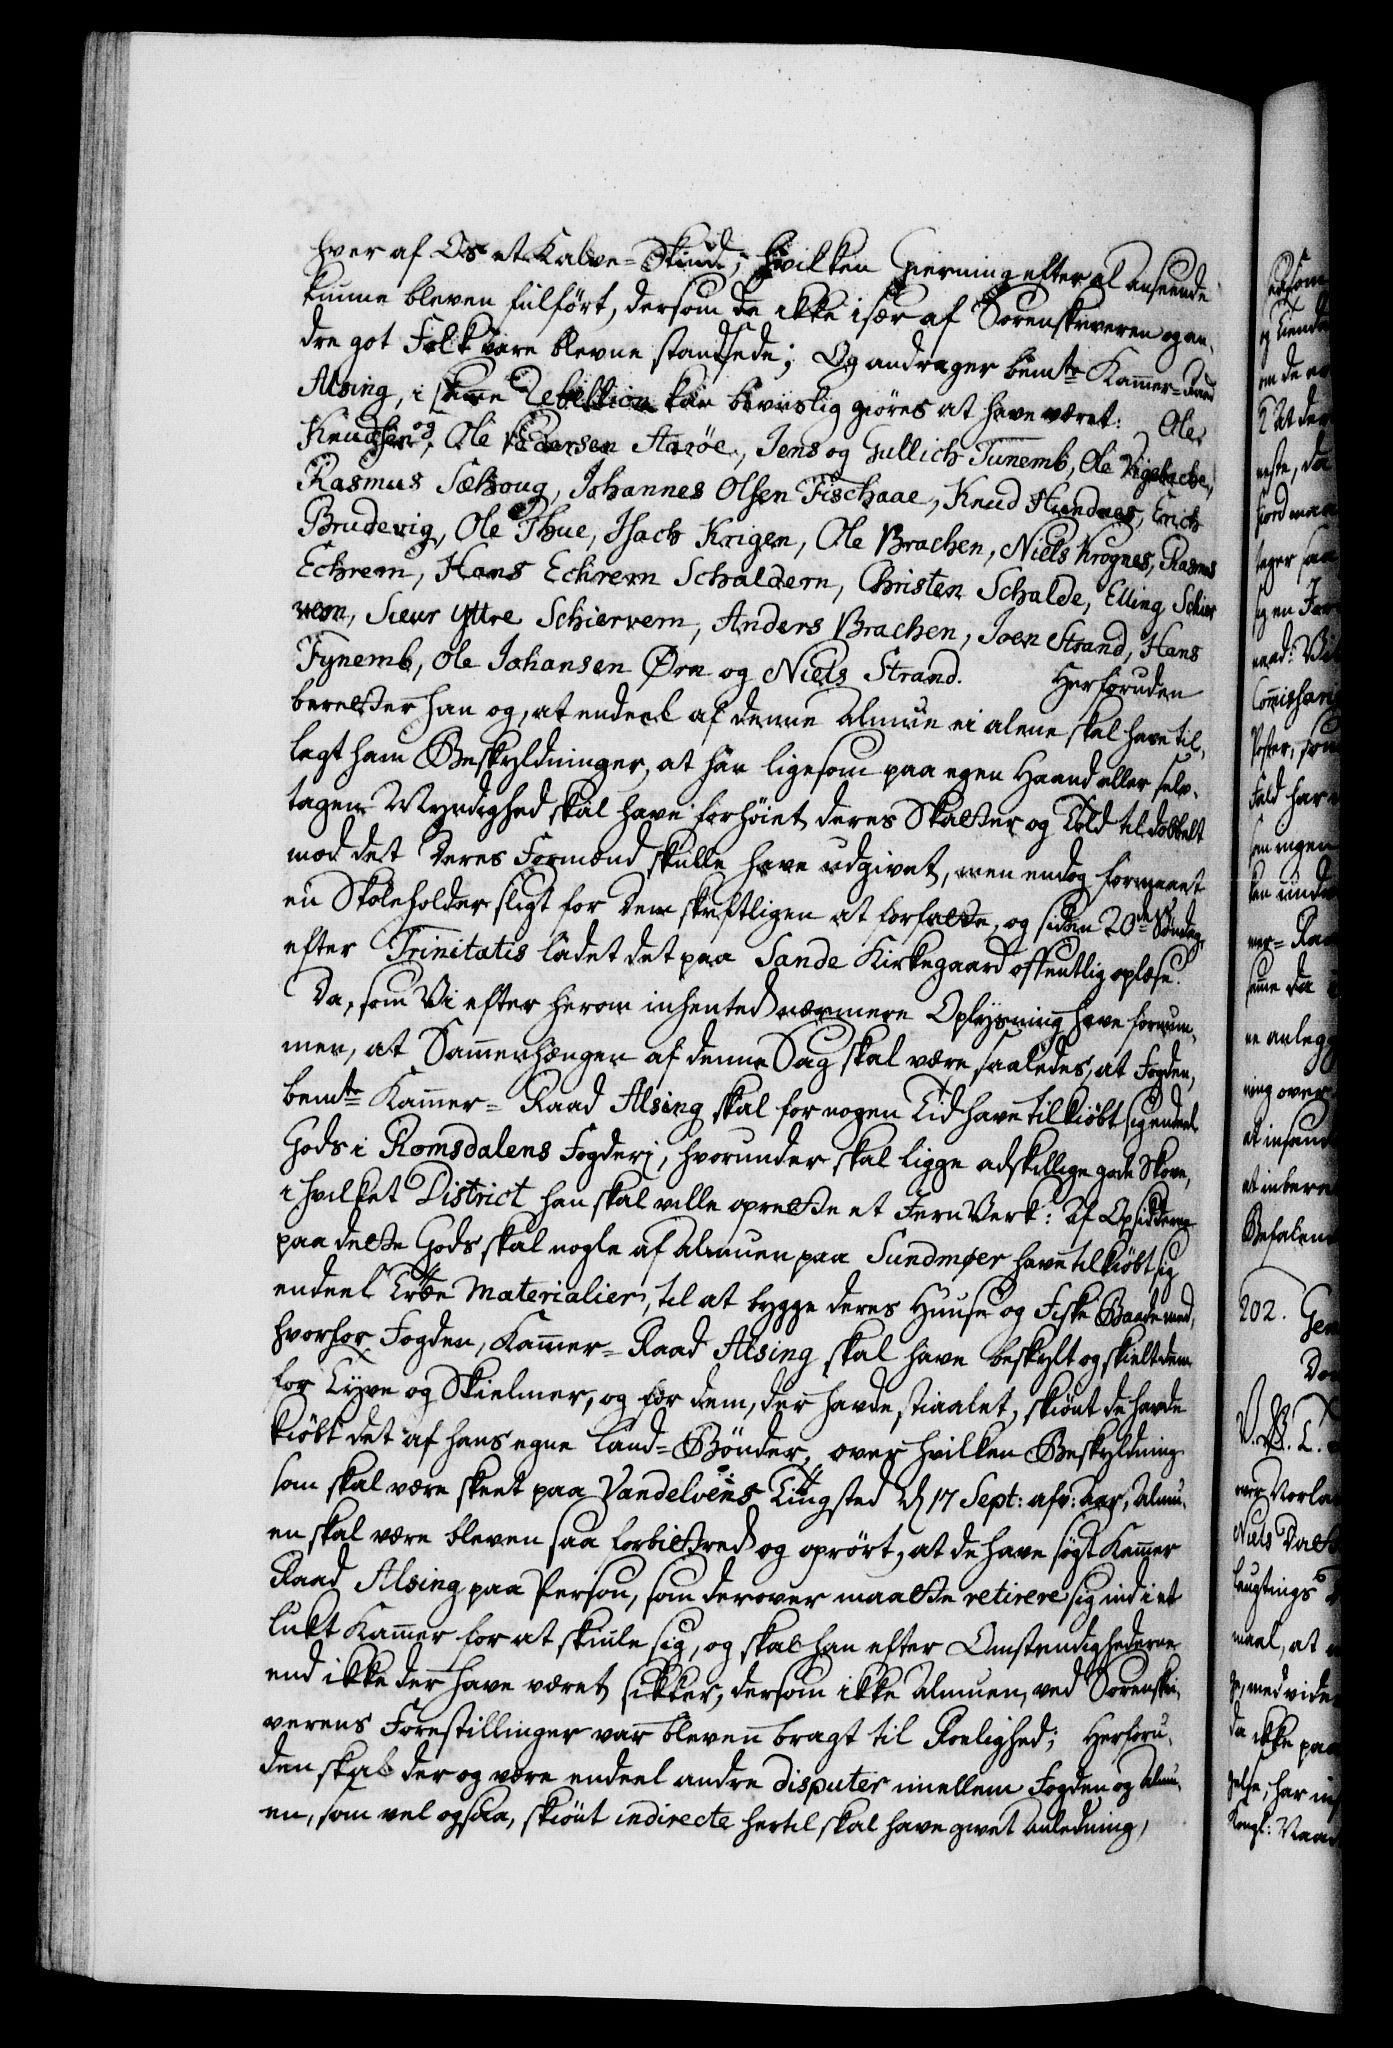 hver af Os et Kalve-Skind; hvilken Gierning efter al anseende
kunne bleven fulført, dersom de ikke især af Sorenskriveren og an-
dre got Folk vare blevne standsede; Og andrager bemte Kammer-Raad
Alsing, i denne Rebellion kan beviislig giøres at have været: Ole
Knudsen og Ole Pedersen Aarøe, Jens og Gullich Tunemb, Ole Vigebache,
Rasmus Sæhoug, Johannes Olsen Fischaae, Knud Hundnes, Erich
Brudevig, Ole Thue, Isach Krigen, Ole Brachen, Niels Krognes, Rasmus
Echrem, Hans Echrem Schaldern, Christen Schalde, Elling Schier
vem, Sieur Yttre Schiervem, Anders Brachen, Joen Strand, Hans
Fynemb, Ole Johansen Ørn og Niels Strand. Herforuden
beretter han og, at endeel af denne Almue ei alene skal have til-
lagt ham Beskyldninger, at han ligesom paa egen Haand eller selv-
tagen Myndighed skal have forhøiet deres Skatter og Told til dobbelt
mod det deres Formænd skulle have udgivet, men endog formaaet
en Skoleholder sligt for dem skriftligen at forfatte, og siden 20de Søndag
efter Trinitatis ladet det paa Sande Kirkegaard offentlig oplæse.
Da, som Vi efter herom inhented nærmere Oplysning have fornum-
men, at Sammenhængen af denne Sag skal være saaledes, at Fogden,
bemte Kammer-Raad Alsing skal for nogen Tid have tilkiøbt sig endeel
Gods i Romsdalens Fogderi, hvorunder skal ligge adskillige gode Skove,
i hvilket District han skal ville oprette et Jern Verk: Af Opsidderne
paa dette Gods skal nogle af Almuen paa Sundmøer have tilkiøbt sig
endeel Træe Materialier, til at bygge deres Huuse og Fiske Baade med,
hvorfor Fogden, Kammer-Raad Alsing skal have beskyldt og skieldt dem
for Tyve og Skielmer, og for dem, der havde stiaalet, skiønt de havde
kiøbt det af hans egne Land-Bønder, over hvilken Beskyldning
som skal være skeet paa Vandelvens Tingsted d 17 Sept: afv: Aar, Almu-
en skal være bleven saa forbittred og oprørt, at de have søgt Kammer
Raad Alsing paa Person, som derover maatte retirere sig ind i et
lukt Kammer for at skiule sig, og skal han efter Omstendighederne
end ikke der have været sikker, dersom ikke Almuen, ved Sorenskri-
verens Forestillinger var bleven bragt til Roelighed; Herforu-
den skal der og være endeel andre disputer imellem Fogden og Almu-
en, som vel ogsaa, skiønt indirecte hertil skal have givet Anledning,